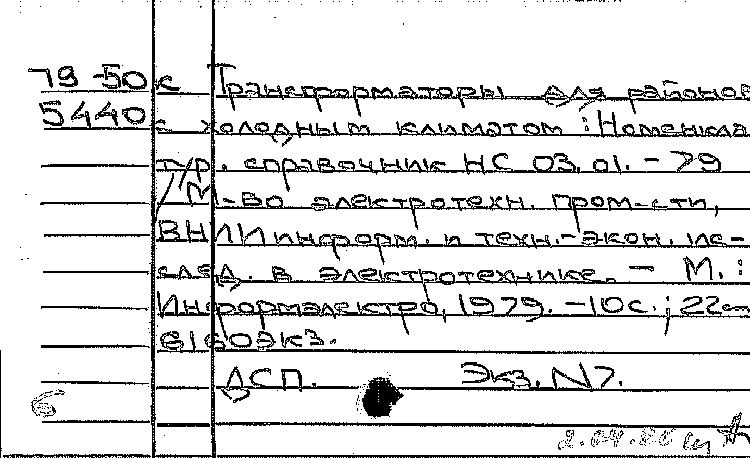 79-50к Трансформаторы для районов
5440 с холодным климатом : Номенкла-
тур. справочник НС 03.01.-79
/М-во электротехн. пром-сти,
ВНИИинформ. и техн.-экон. ис-
след. в электротехнике. - М. :
Информэлектро, 1979. - 10с. ; 22см
6160экз.
ДСП. Экз. N7.
6